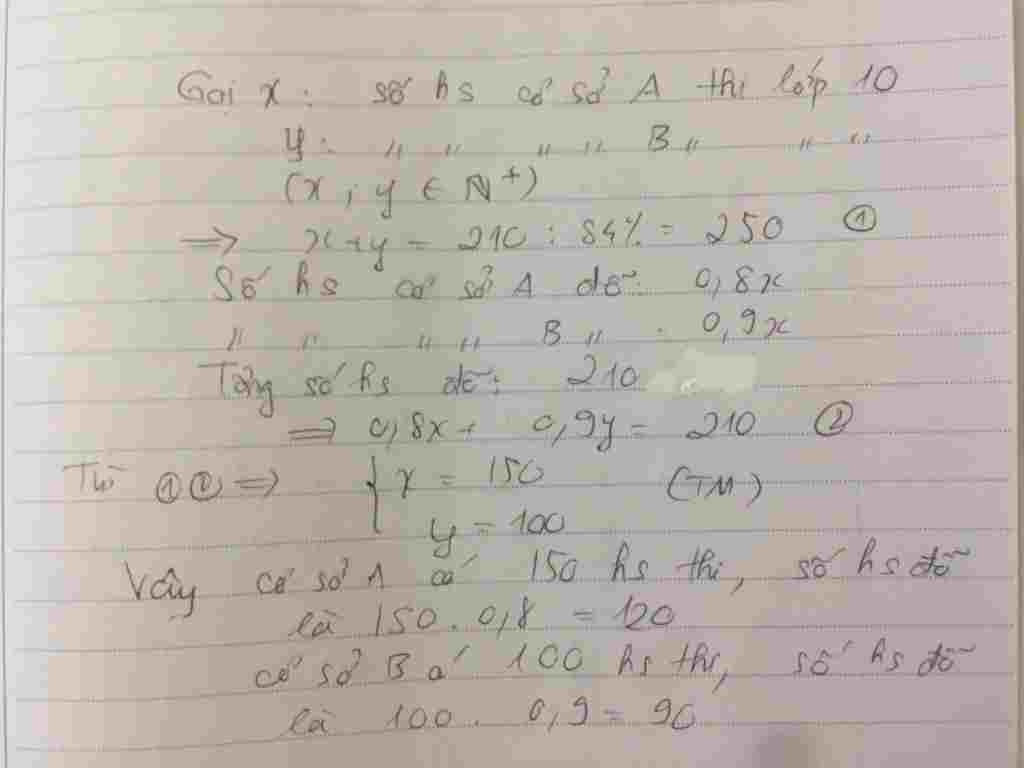 Gọi x : số hs cơ sở A thi lớp 10
y : " " " " B " " "
(x ; y ∈ N+)
=> x+y = 210 : 84% = 250 ①
Số hs cơ sở A đỗ: 0,8x
" " " " B " : 0,9x
Tổng số hs đỗ: 210
=> 0,8x + 0,9y = 210 ②
Từ ①② => { x = 150 (TM)
y = 100
Vậy cơ sở A có 150 hs thi, số hs đỗ
là 150 . 0,8 = 120
cơ sở B có 100 hs thi, số hs đỗ
là 100 . 0,9 = 90